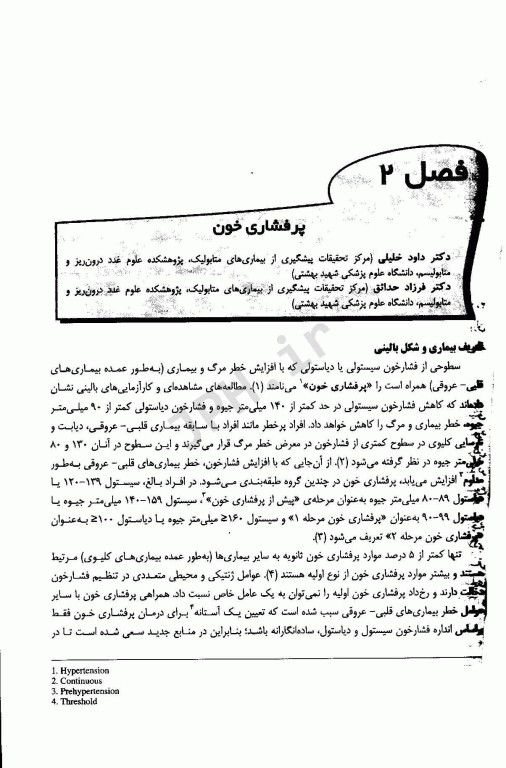 فصل ۲
پرفشاری خون
دکتر داود خلیلی (مرکز تحقیقات پیشگیری از بیماری‌های متابولیک، پژوهشکده علوم غدد درون‌ریز و
متابولیسم، دانشگاه علوم پزشکی شهید بهشتی)
دکتر فرزاد حدائق (مرکز تحقیقات پیشگیری از بیماری‌های متابولیک، پژوهشکده علوم غدد درون‌ریز و
متابولیسم، دانشگاه علوم پزشکی شهید بهشتی)
تعریف بیماری و شکل بالینی
سطوحی از فشارخون سیستولی یا دیاستولی که با افزایش خطر مرگ و بیماری (به‌طور عمده بیماری‌های
قلبی- عروقی) همراه است را «پرفشاری خون»۱ می‌نامند (۱). مطالعه‌های مشاهده‌ای و کارآزمایی‌های بالینی نشان
داده‌اند که کاهش فشارخون سیستولی در حد کمتر از ۱۴۰ میلی‌متر جیوه و فشارخون دیاستولی کمتر از ۹۰ میلی‌متر
جیوه خطر بیماری و مرگ را کاهش خواهد داد. افراد پرخطر مانند افراد با سابقه بیماری قلبی- عروقی، دیابت و
کلیوی در سطوح کمتری از فشارخون در معرض خطر مرگ قرار می‌گیرند و این سطوح در آنان ۱۳۰ و ۸۰
میلی‌متر جیوه در نظر گرفته می‌شود (۲). از آن‌جایی که با افزایش فشارخون، خطر بیماری‌های قلبی- عروقی به‌طور
مداوم۲ افزایش می‌یابد، پرفشاری خون در چندین گروه طبقه‌بندی می‌شود. در افراد بالغ، سیستول ۱۳۹-۱۲۰ یا
دیاستول ۸۹-۸۰ میلی‌متر جیوه به‌عنوان مرحله‌ی «پیش از پرفشاری خون»۳، سیستول ۱۵۹-۱۴۰ میلی‌متر جیوه یا
دیاستول ۹۹-۹۰ به‌عنوان «پرفشاری خون مرحله ۱» و سیستول ۱۶۰≤ میلی‌متر جیوه یا دیاستول ۱۰۰≤ به‌عنوان
«پرفشاری خون مرحله ۲» تعریف می‌شود (۳).
تنها کمتر از ۵ درصد موارد پرفشاری خون ثانویه به سایر بیماری‌ها (به‌طور عمده بیماری‌های کلیوی) مرتبط
هستند و بیشتر موارد پرفشاری خون از نوع اولیه هستند (۴). عوامل ژنتیکی و محیطی متعددی در تنظیم فشارخون
دخالت دارند و رخداد پرفشاری خون اولیه را نمی‌توان به یک عامل خاص نسبت داد. همراهی پرفشاری خون با سایر
عوامل خطر بیماری‌های قلبی- عروقی سبب شده است که تعیین یک آستانه۴ برای درمان پرفشاری خون فقط
براساس اندازه فشارخون سیستول و دیاستول، ساده‌انگارانه باشد؛ بنابراین در منابع جدید سعی شده است تا در
1. Hypertension
2. Continuous
3. Prehypertension
4. Threshold